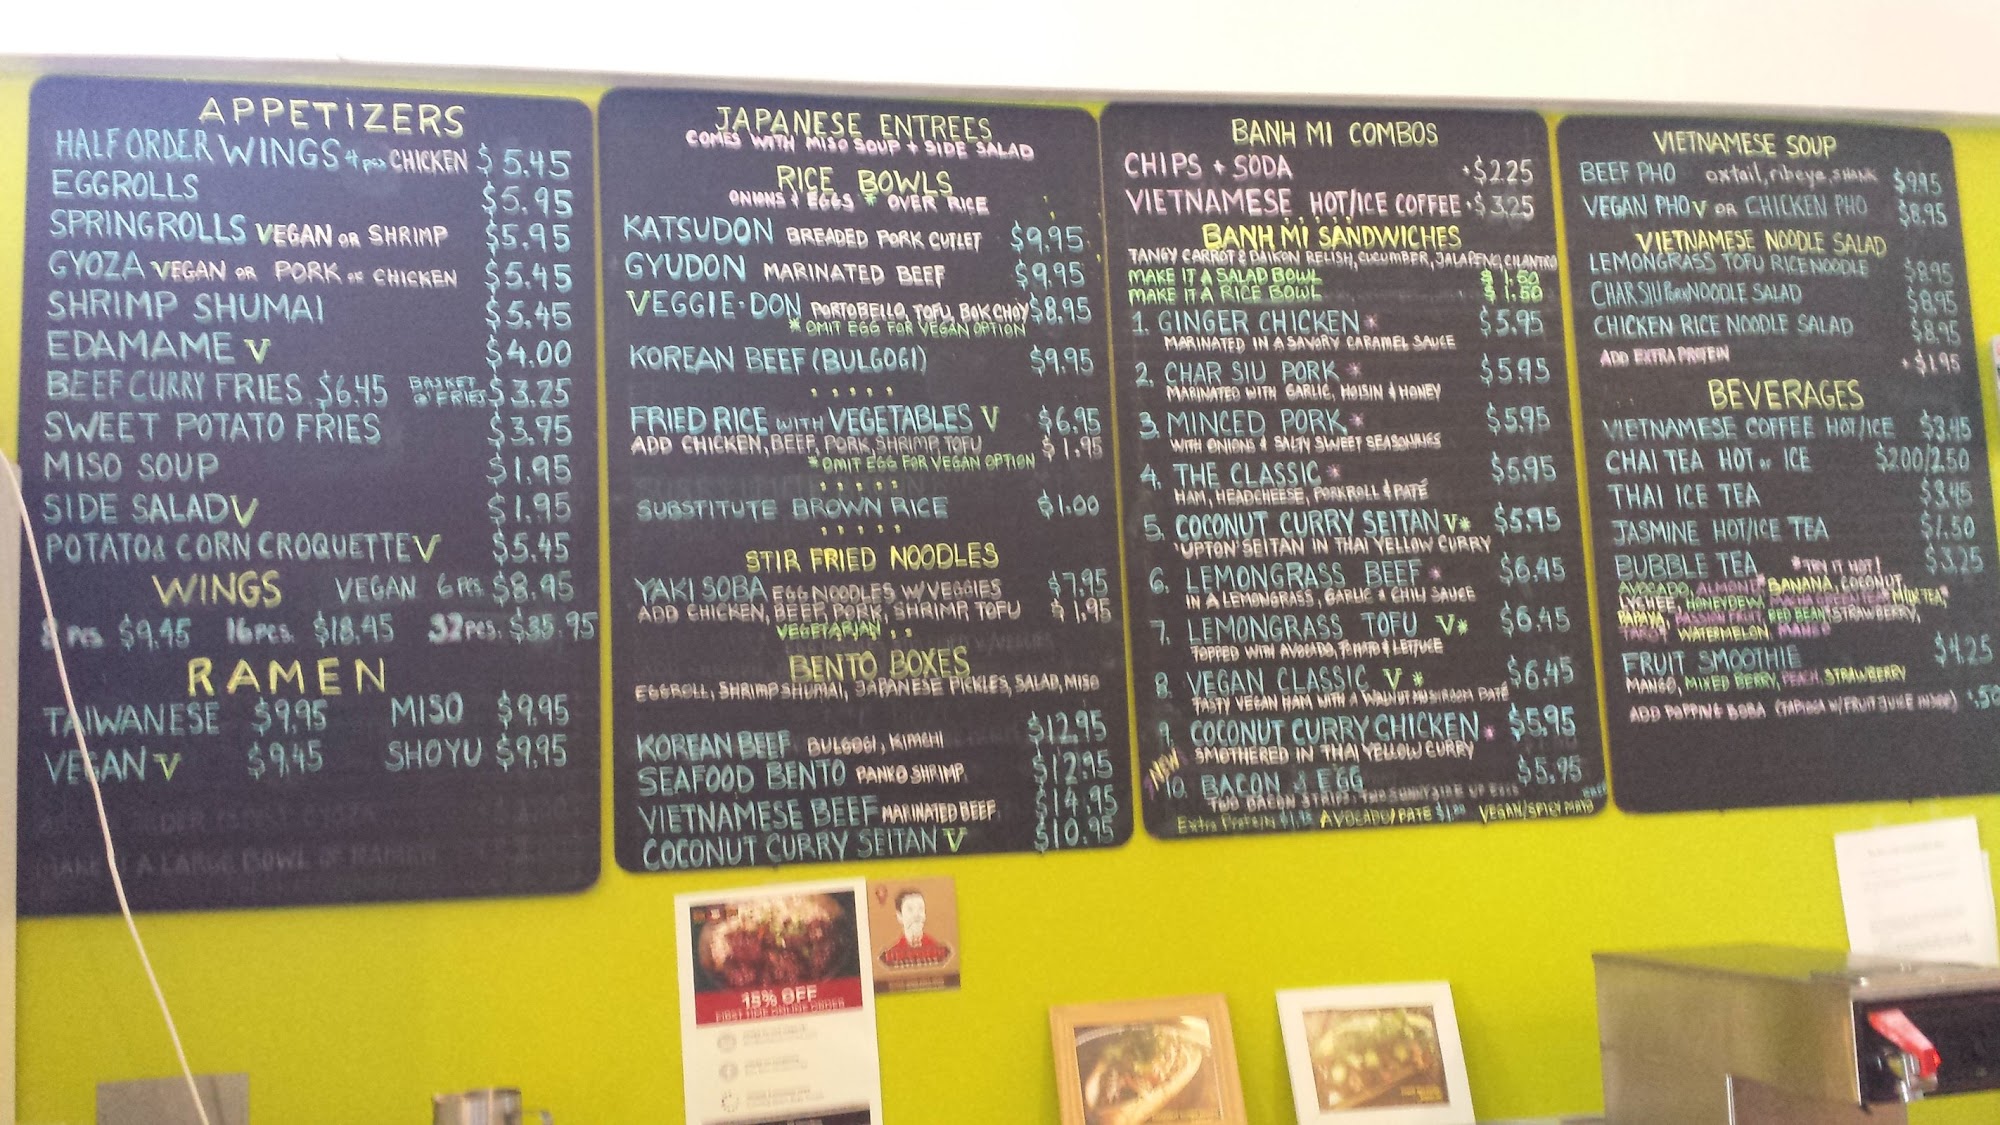 APPETIZERS
HALF ORDER WINGS 4 pcs CHICKEN $5.45
EGGROLLS $5.95
SPRINGROLLS VEGAN OR SHRIMP $5.95
GYOZA VEGAN OR PORK OR CHICKEN $5.45
SHRIMP SHUMAI $5.45
EDAMAME V $4.00
BEEF CURRY FRIES $6.45 BASKET O' FRIES $3.25
SWEET POTATO FRIES $3.95
MISO SOUP $1.95
SIDE SALAD V $1.95
POTATO & CORN CROQUETTE V $5.45
WINGS VEGAN 6 pcs. $8.95
8 pcs $9.45 16 pcs. $18.45 32 pcs. $35.95
RAMEN
TAIWANESE $9.95 MISO $9.95
VEGAN V $9.45 SHOYU $9.95
MAKE IT A LARGE BOWL OF RAMEN
JAPANESE ENTREES
COMES WITH MISO SOUP + SIDE SALAD
RICE BOWLS
ONIONS & EGGS * OVER RICE
KATSUDON BREADED PORK CUTLET $9.95
GYUDON MARINATED BEEF $9.95
VEGGIE-DON PORTOBELLO, TOFU, BOK CHOY $8.95
* OMIT EGG FOR VEGAN OPTION
KOREAN BEEF (BULGOGI) $9.95
FRIED RICE WITH VEGETABLES V $6.95
ADD CHICKEN, BEEF, PORK, SHRIMP, TOFU $1.95
* OMIT EGG FOR VEGAN OPTION
SUBSTITUTE BROWN RICE $1.00
STIR FRIED NOODLES
YAKI SOBA EGG NOODLES W/VEGGIES $7.95
ADD CHICKEN, BEEF, PORK, SHRIMP, TOFU $1.95
VEGETARIAN
BENTO BOXES
EGGROLL, SHRIMP SHUMAI, JAPANESE PICKLES, SALAD, MISO
KOREAN BEEF BULGOGI, KIMCHI $12.95
SEAFOOD BENTO PANKO SHRIMP $12.95
VIETNAMESE BEEF MARINATED BEEF $14.95
COCONUT CURRY SEITAN V $10.95
BANH MI COMBOS
CHIPS + SODA +$2.25
VIETNAMESE HOT/ICE COFFEE +$3.25
BANH MI SANDWICHES
TANGY CARROT & DAIKON RELISH, CUCUMBER, JALAPENO, CILANTRO
MAKE IT A SALAD BOWL $1.50
MAKE IT A RICE BOWL $1.50
1. GINGER CHICKEN * $5.95
MARINATED IN A SAVORY CARAMEL SAUCE
2. CHAR SIU PORK * $5.95
MARINATED WITH GARLIC, HOISIN & HONEY
3. MINCED PORK * $5.95
WITH ONIONS & SALTY SWEET SEASONINGS
4. THE CLASSIC * $5.95
HAM, HEADCHEESE, PORKROLL & PATÉ
5. COCONUT CURRY SEITAN V* $5.95
'UPTON' SEITAN IN THAI YELLOW CURRY
6. LEMONGRASS BEEF * $6.45
IN A LEMONGRASS, GARLIC & CHILI SAUCE
7. LEMONGRASS TOFU V* $6.45
TOPPED WITH AVOCADO, TOMATO & LETTUCE
8. VEGAN CLASSIC V* $6.45
TASTY VEGAN HAM WITH A WALNUT MUSHROOM PATÉ
9. COCONUT CURRY CHICKEN * $5.95
SMOTHERED IN THAI YELLOW CURRY
NEW 10. BACON & EGG $5.95
TWO BACON STRIPS, TWO SUNNYSIDE UP EGGS
Extra Protein AVOCADO/PATE VEGAN/SPICY MAYO
VIETNAMESE SOUP
BEEF PHO oxtail, ribeye, SHANK $9.95
VEGAN PHO V OR CHICKEN PHO $8.95
VIETNAMESE NOODLE SALAD
LEMONGRASS TOFU RICE NOODLE $8.95
CHAR SIU Pork NOODLE SALAD $8.95
CHICKEN RICE NOODLE SALAD $8.95
ADD EXTRA PROTEIN +$1.95
BEVERAGES
VIETNAMESE COFFEE HOT/ICE $3.45
CHAI TEA HOT or ICE $2.00/2.50
THAI ICE TEA $3.45
JASMINE HOT/ICE TEA $1.50
BUBBLE TEA *TRY IT HOT! $3.25
AVOCADO, ALMOND* BANANA, COCONUT,
LYCHEE, HONEYDEW, MILK TEA,*
PAPAYA, PASSION FRUIT, RED BEAN* STRAWBERRY,
TARO* WATERMELON, MANGO
FRUIT SMOOTHIE $4.25
MANGO, MIXED BERRY, PEACH, STRAWBERRY
ADD POPPING BOBA (TAPIOCA W/FRUIT JUICE INSIDE) +.50
15% OFF
FIRST TIME ONLINE ORDER